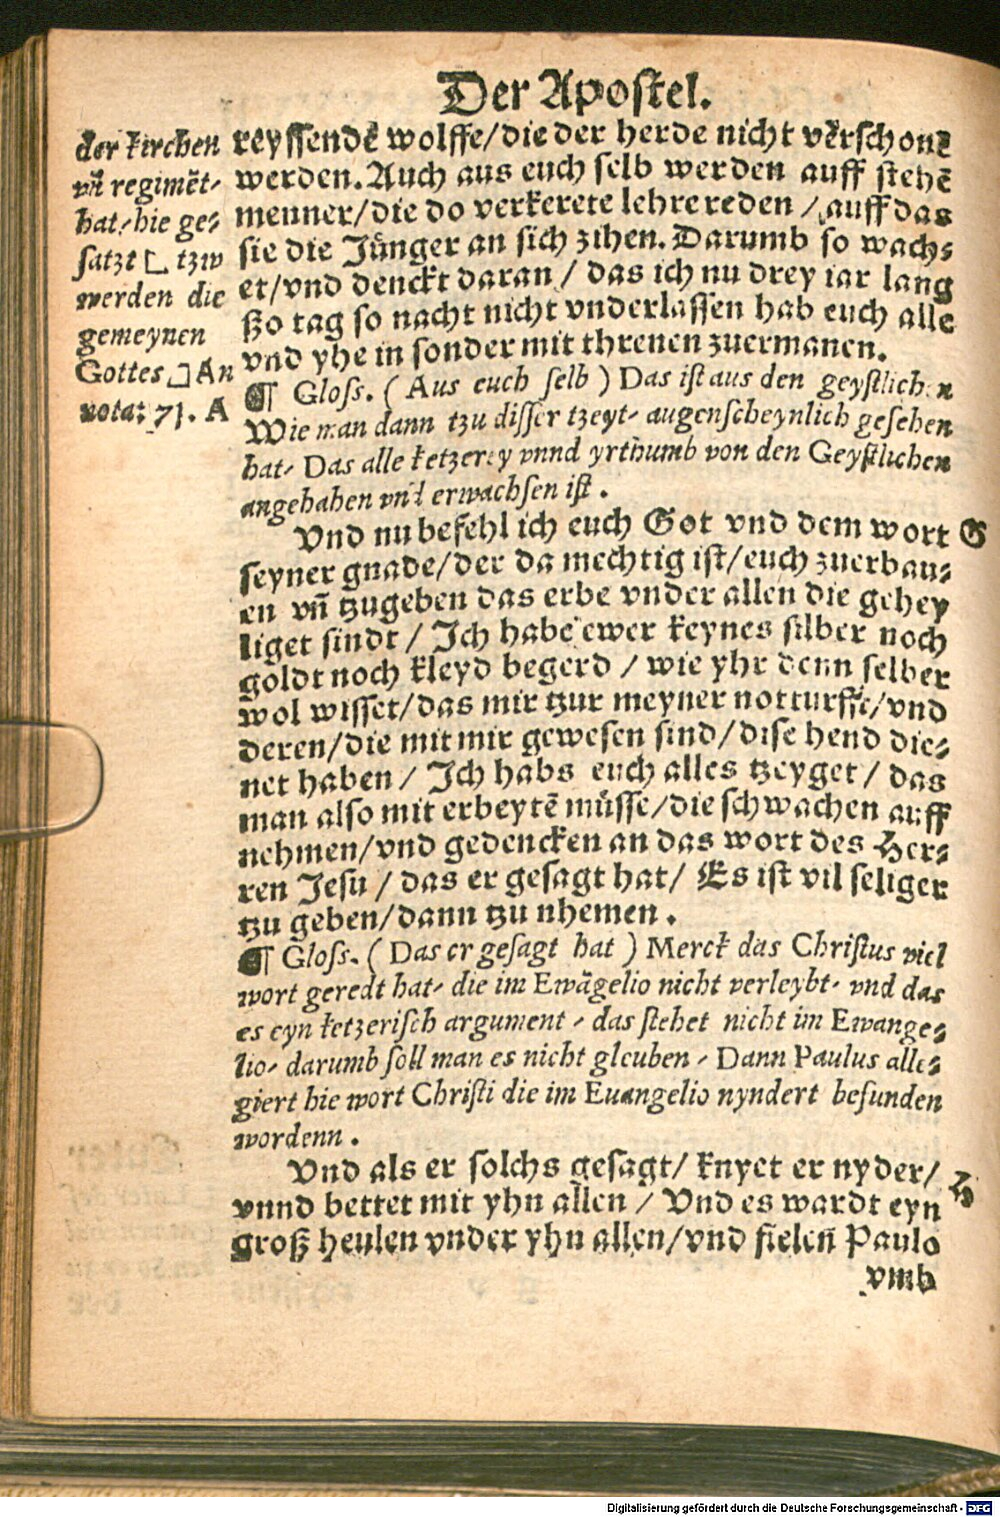 Der Apostel.
der kirchen
vñ regimẽt⸗
hat⸗ hie ge⸗
satzt ⌊ tzw
werden die
gemeynen
Gottes ⌋ An
nota: 71. A
reyssendẽ wolffe/die der herde nicht verschonẽ
werden. Auch aus euch selb werden auff stehẽ
menner/die do verkerete lehre reden / auff das
sie die Jünger an sich zihen. Darumb so wach⸗
et/vnd denckt daran / das ich nu drey iar lang
ßo tag so nacht nicht vnderlassen hab euch alle
vnd yhe in sonder mit threnen zuermanen.
¶ Gloss. ( Aus euch selb ) Das ist aus den geystlichen
Wie man dann tzu disser tzeyt⸗ augenscheynlich gesehen
hat⸗ Das alle ketzerey vnnd yrthumb von den Geystlichen
angehaben vnd erwachsen ist .
Vnd nu befehl ich euch Got vnd dem wort
G
seyner gnade/der da mechtig ist/euch zuerbau⸗
en vñ tzugeben das erbe vnder allen die gehey
liget sindt / Ich habe ewer keynes silber noch
goldt noch kleyd begerd / wie yhr denn selber
wol wisset/das mir tzur meyner notturfft/vnd
deren/die mit mir gewesen sind/dise hend die⸗
net haben / Ich habs euch alles tzeyget / das
man also mit erbeytẽ müsse/die schwachen auff
nehmen/vnd gedencken an das wort des Her⸗
ren Jesu / das er gesagt hat/ Es ist vil seliger
tzu geben/dann tzu nhemen .
¶ Gloss. ( Das er gesagt hat ) Merck das Christus viel
wort geredt hat⸗ die im Ewãgelio nicht verleybt⸗ vnd das
es eyn ketzerisch argument ⸗ das stehet nicht im Ewange⸗
lio⸗ darumb soll man es nicht gleuben ⸗ Dann Paulus alle⸗
giert hie wort Christi die im Euangelio nyndert befunden
wordenn .
Vnd als er solchs gesagt/ knyet er nyder/
H
vnnd bettet mit yhn allen / Vnd es wardt eyn
groß heulen vnder yhn allen/vnd fielen Paulo
vmb
Digitalisierung gefördert durch die Deutsche Forschungsgemeinschaft - DFG